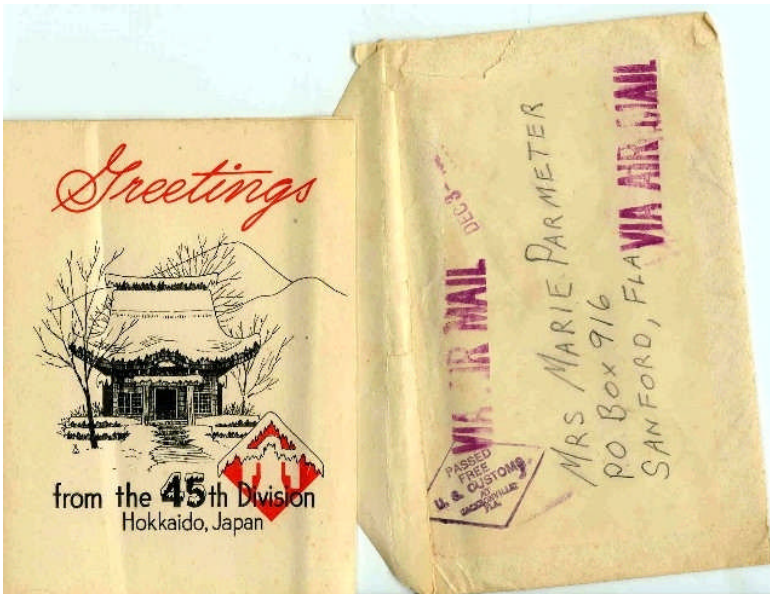 Greetings
from the 45th Division
Hokkaido, Japan
VIA AIR MAIL
DEC 3
MRS MARIE PARMETER
PO BOX 916
SANFORD, FLA
VIA AIR MAIL
PASSED
FREE
U. S. CUSTOMS
AT
JACKSONVILLE
FLA.